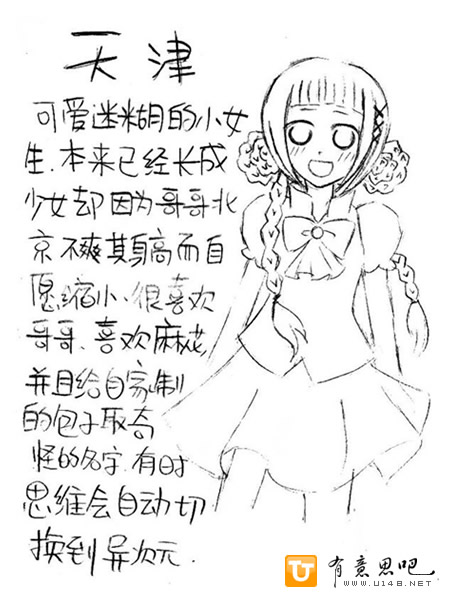 天津
可爱迷糊的小女
生.本来已经长成
少女却因为哥哥北
京不爽其身高而自
愿缩小.很喜欢
哥哥.喜欢麻花,
并且给自家制
的包子取奇
怪的名字.有时
思维会自动切
换到异次元.
有意思吧
www.U148.NET